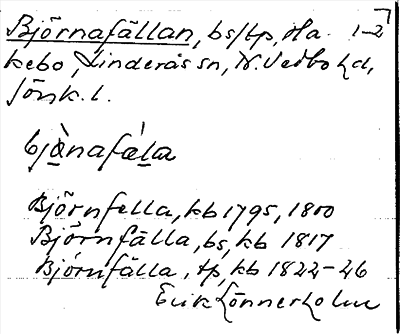 Björnafällan, bs/tp, Ha- 1-2
kebo, Linderås sn, N. Vedbo hd,
Jönk. l.
bjö̀nafá̱la
Björnfella, kb 1795, 1800
Björnfälla, bs, kb 1817
Björnfälla, tp, kb 1822-26
Erik Lönnerholm